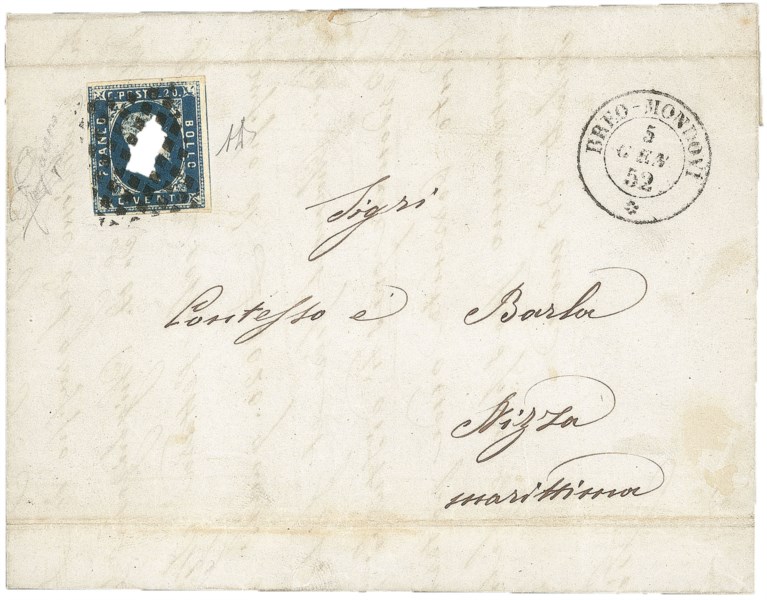 C. POSTE. 20.
FRANCO
BOLLO
C. VENTI
BREO-MONDOVI
5
GEN
52
Sigri
Contesso è Barla
Nizza
marittima